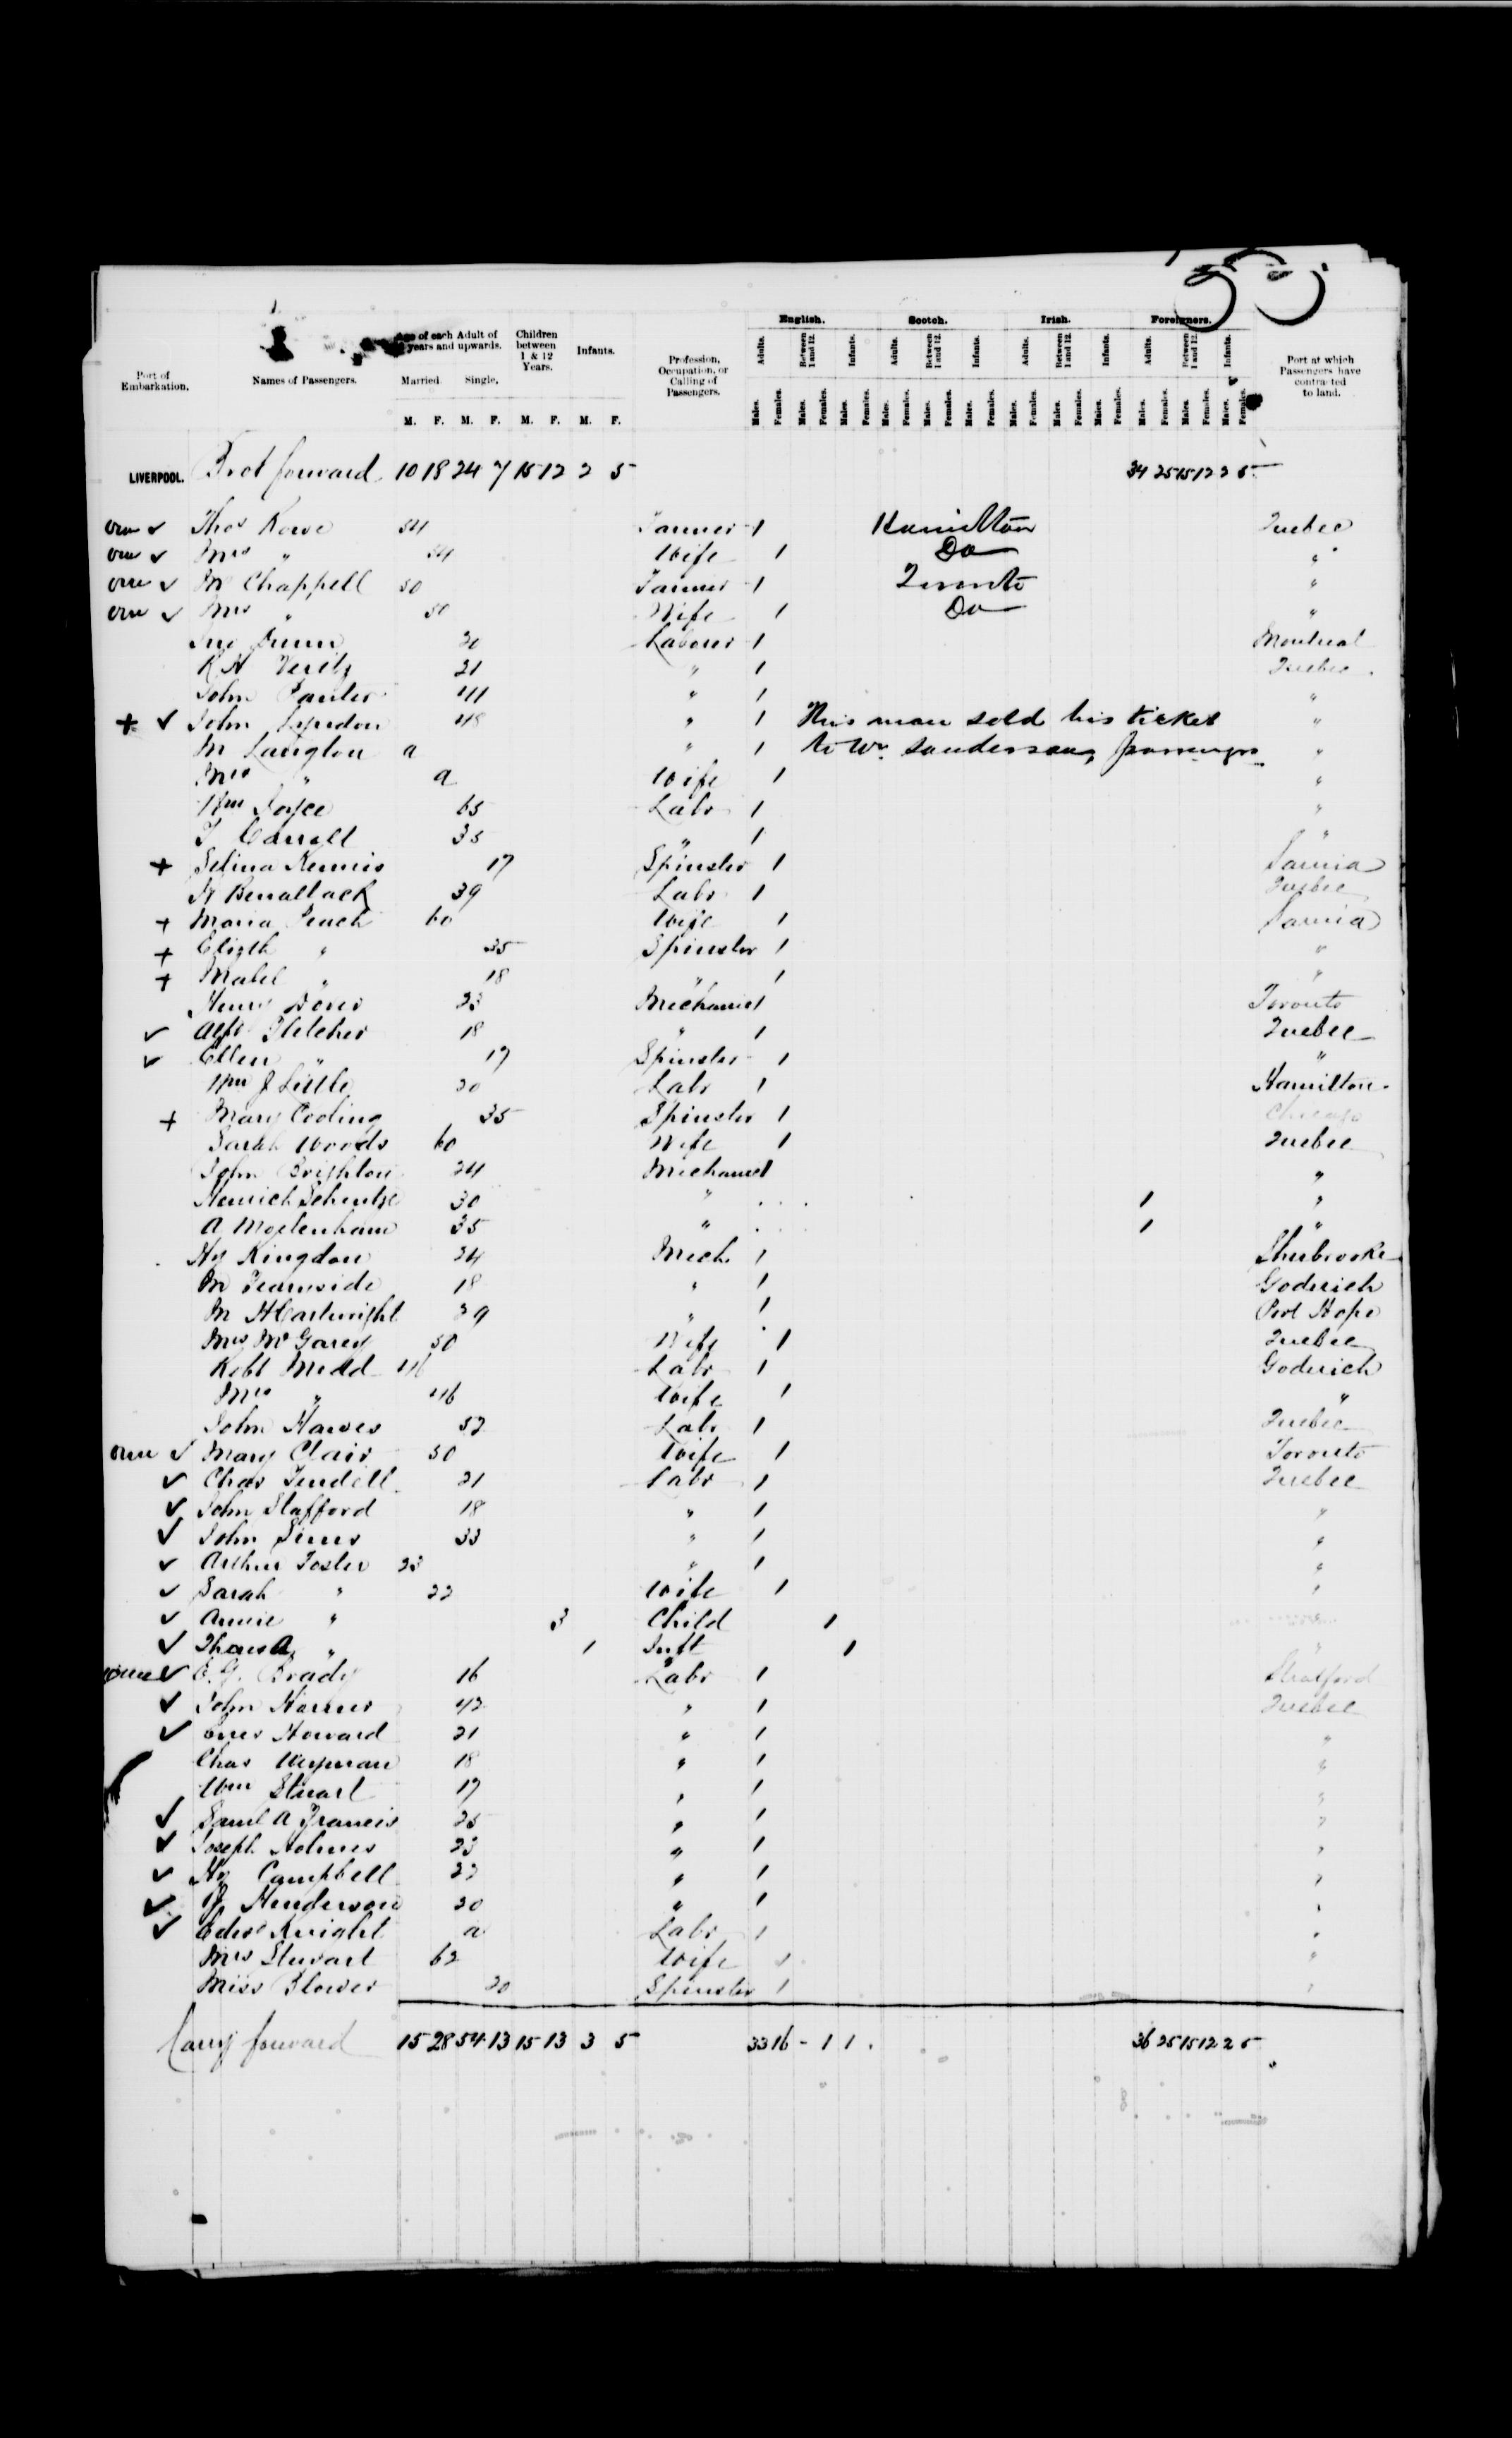 English. Scotch. Irish. Foreigners.
Port of Embarkation. Names of Passengers. Age of each Adult of years and upwards. Married. Single. Children between 1 & 12 Years. Infants. Profession, Occupation, or Calling of Passengers. Port at which Passengers have contracted to land.
Adults. Between 1 and 12. Infants. Adults. Between 1 and 12. Infants. Adults. Between 1 and 12. Infants. Adults. Between 1 and 12. Infants.
M. F. M. F. M. F. M. F. Males. Females. Males. Females. Males. Females. Males. Females. Males. Females. Males. Females. Males. Females. Males. Females. Males. Females. Males. Females. Males. Females. Males. Females.
LIVERPOOL. Brot forward 10 18 24 7 15 12 2 5 34 25 15 12 2 5
✓ Thos Rowe 54 Farmer 1 Hamilton Quebec
✓ Mrs " 54 Wife 1 Do "
✓ M Chappell 50 Farmer 1 Toronto "
✓ Mrs " 50 Wife 1 Do "
Jno 20 Laborer 1 Montreal
R H Verity 21 " 1 Quebec
John 41 " 1 "
+ ✓ John Lyndon 48 " 1 This man sold his ticket "
M Langton a " 1 to Wm Sanderson, passenger "
Mrs " a Wife 1 "
Wm Joyce 65 Labr 1 "
T Carroll 35 " 1 "
+ Selina Kennis 17 Spinster 1 Sarnia
H Benallack 39 Labr 1 Quebec
+ Maria Peach 60 Wife 1 Sarnia
+ Elizth " 35 Spinster 1 "
+ Mabel " 18 " 1 "
Henry 23 Mechanic 1 Toronto
✓ Alfd Fletcher 18 " 1 Quebec
✓ Ellen " 17 Spinster 1 "
Wm J Little 20 Labr 1 Hamilton
+ Mary Cooling 35 Spinster 1 Chicago
Sarah Woods 60 Wife 1 Quebec
John Brighton 24 Mechanic 1 "
30 " 1 "
A 35 " 1 "
Hy Kingdon 24 Mech 1 Sherbrooke
M 18 " 1 Goderich
M H Cartwright 39 " 1 Port Hope
Mrs McGarey 50 Wife 1 Quebec
Robt Medd 46 Labr 1 Goderich
Mrs " 46 Wife 1 "
John Hawes 52 Labr 1 Quebec
✓ Mary Clair 50 Wife 1 Toronto
✓ Chas Tindell 21 Labr 1 Quebec
✓ John Stafford 18 " 1 "
✓ John Sims 33 " 1 "
✓ Arthur Foster 23 " 1 "
✓ Sarah " 22 Wife 1 "
✓ Annie " 3 Child 1 "
✓ Thos A " 1 Inft 1 "
✓ E. G. Brady 16 Labr 1 Stratford
✓ John 42 " 1 Quebec
✓ Howard 21 " 1 "
Chas Weyman 18 " 1 "
Wm Stuart 17 " 1 "
✓ Saml A Francis 25 " 1 "
✓ Joseph Holmes 23 " 1 "
✓ Hy Campbell 22 " 1 "
✓ Henderson 20 " 1 "
✓ Edwd Knight a Labr 1 "
Mrs Stewart 62 Wife 1 "
Miss Blower 20 Spinster 1 "
Carry forward 15 28 54 13 15 13 3 5 33 16 - 1 1 . 36 25 15 12 2 5